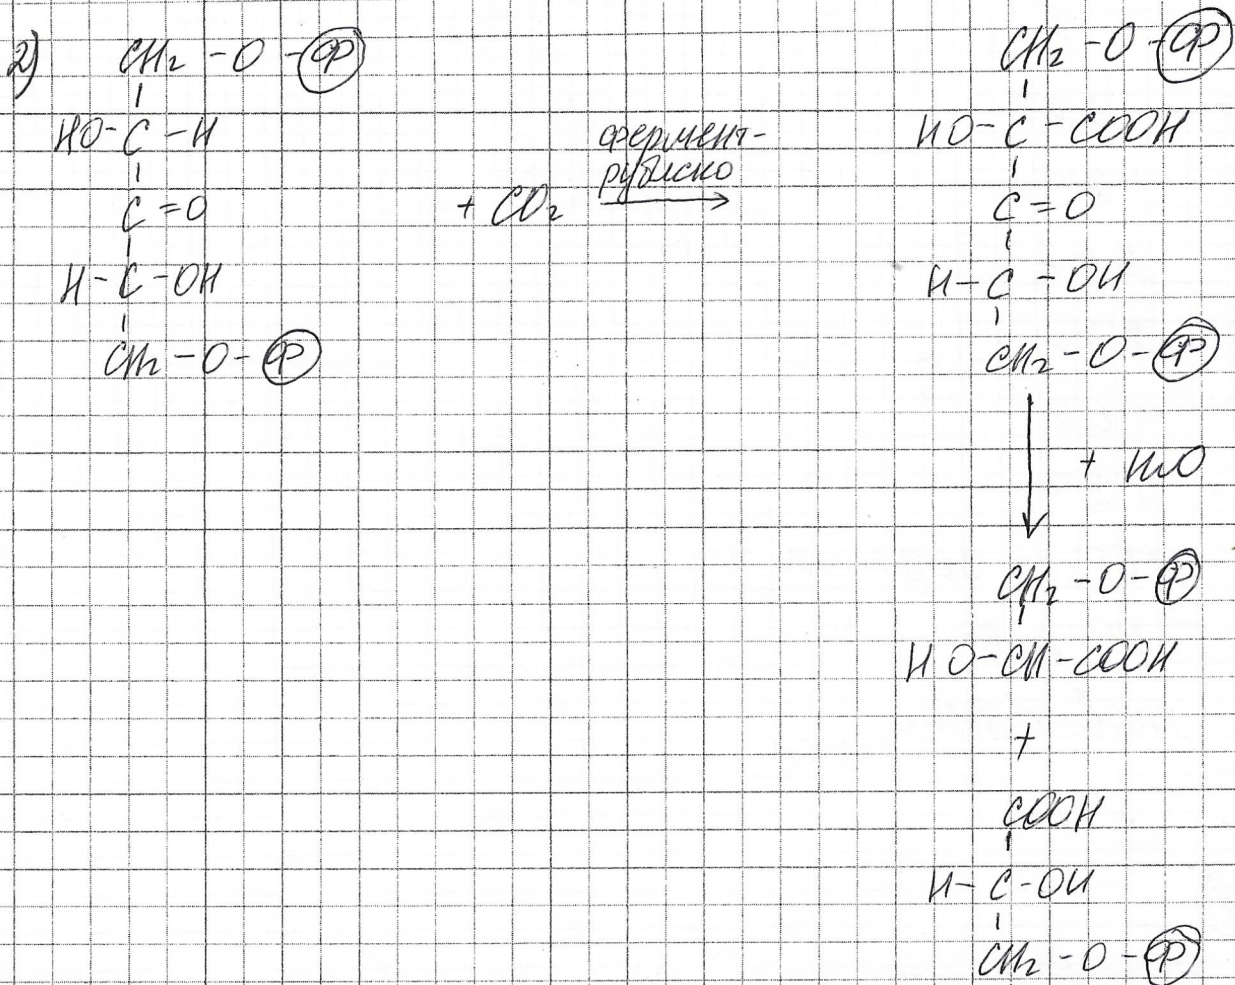 2) CH₂ - O - Ф
HO - C - H
C = O
H - C - OH
CH₂ - O - Ф
+ CO₂
фермент-
рубиско
CH₂ - O - Ф
HO - C - COOH
C = O
H - C - OH
CH₂ - O - Ф
+ H₂O
CH₂ - O - Ф
HO - CH - COOH
+
COOH
H - C - OH
CH₂ - O - Ф